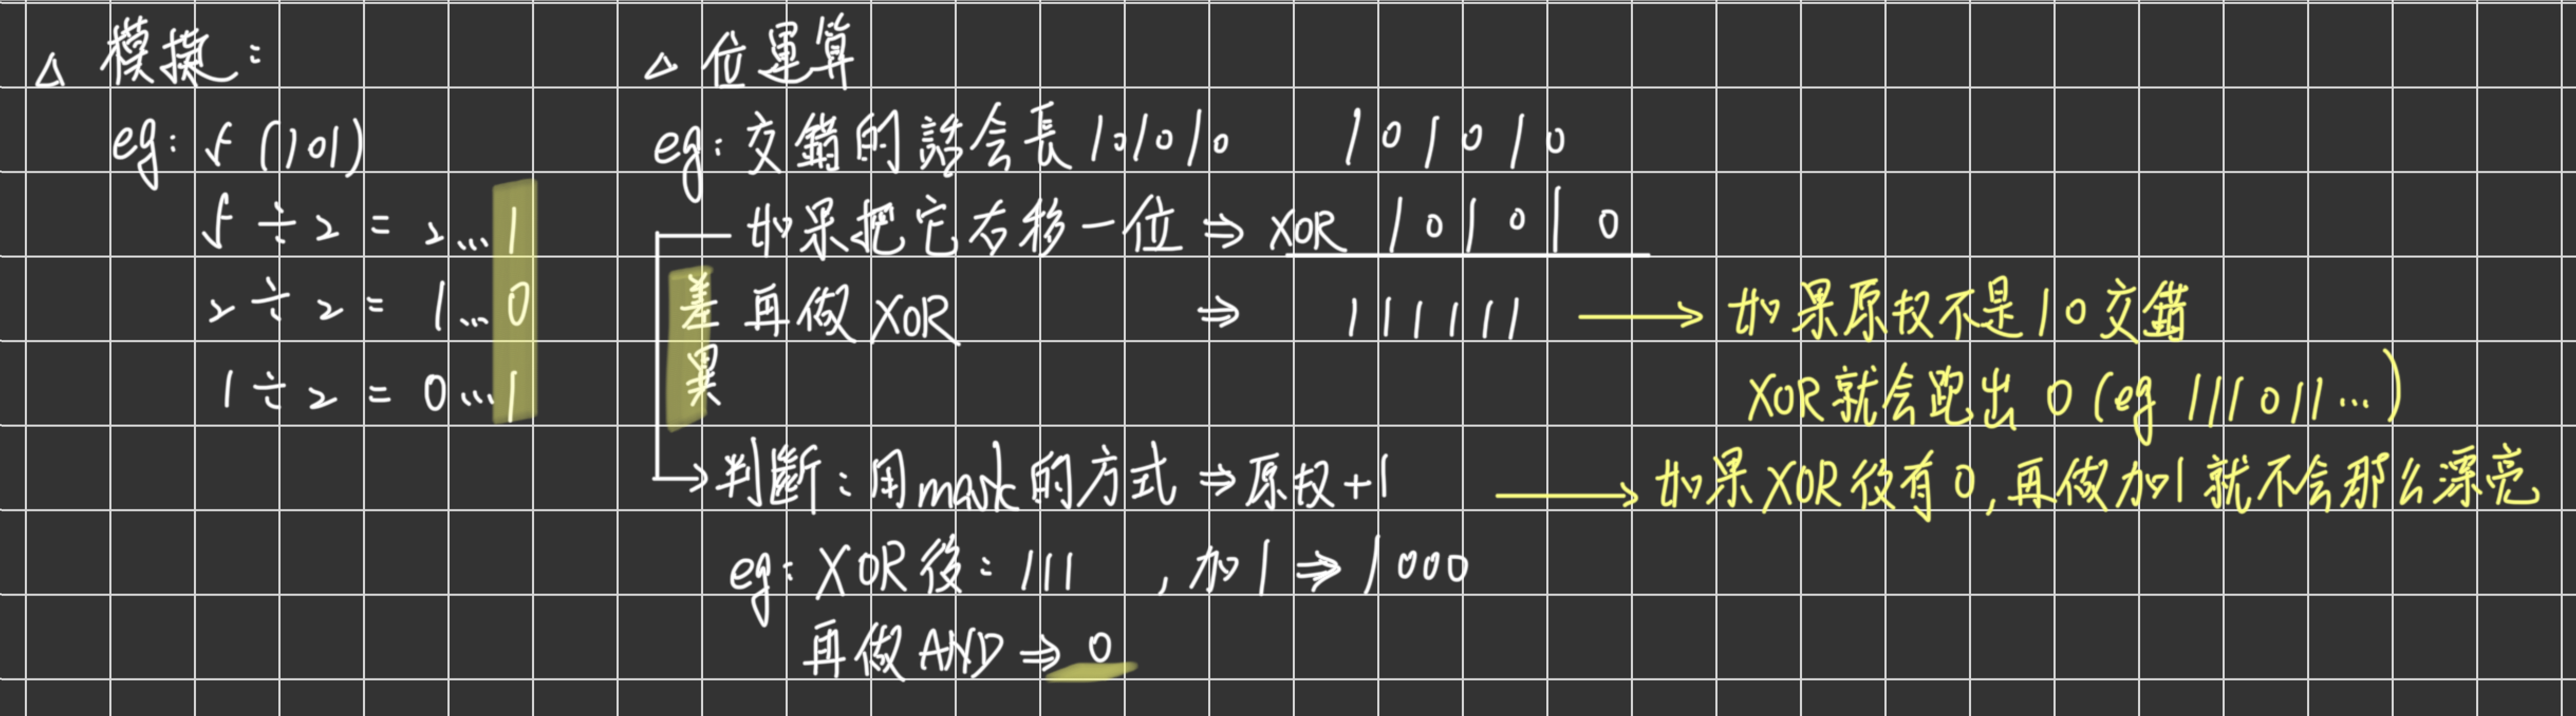 △ 模擬：
eg: 5 (101)
5 ÷ 2 = 2...1
2 ÷ 2 = 1...0
1 ÷ 2 = 0...1
△ 位運算
eg: 交錯的話会長101010
如果把它右移一位 ⇒
再做 XOR ⇒
101010
XOR 101010
111111
差異
→ 如果原权不是10交錯
XOR就会跑出 0 (eg 111011...)
→ 判斷：用mask的方式 ⇒ 原权+1
→ 如果XOR後有0, 再做加1就不会那么漂亮
eg: XOR後: 111 , 加1 ⇒ 1000
再做AND ⇒ 0